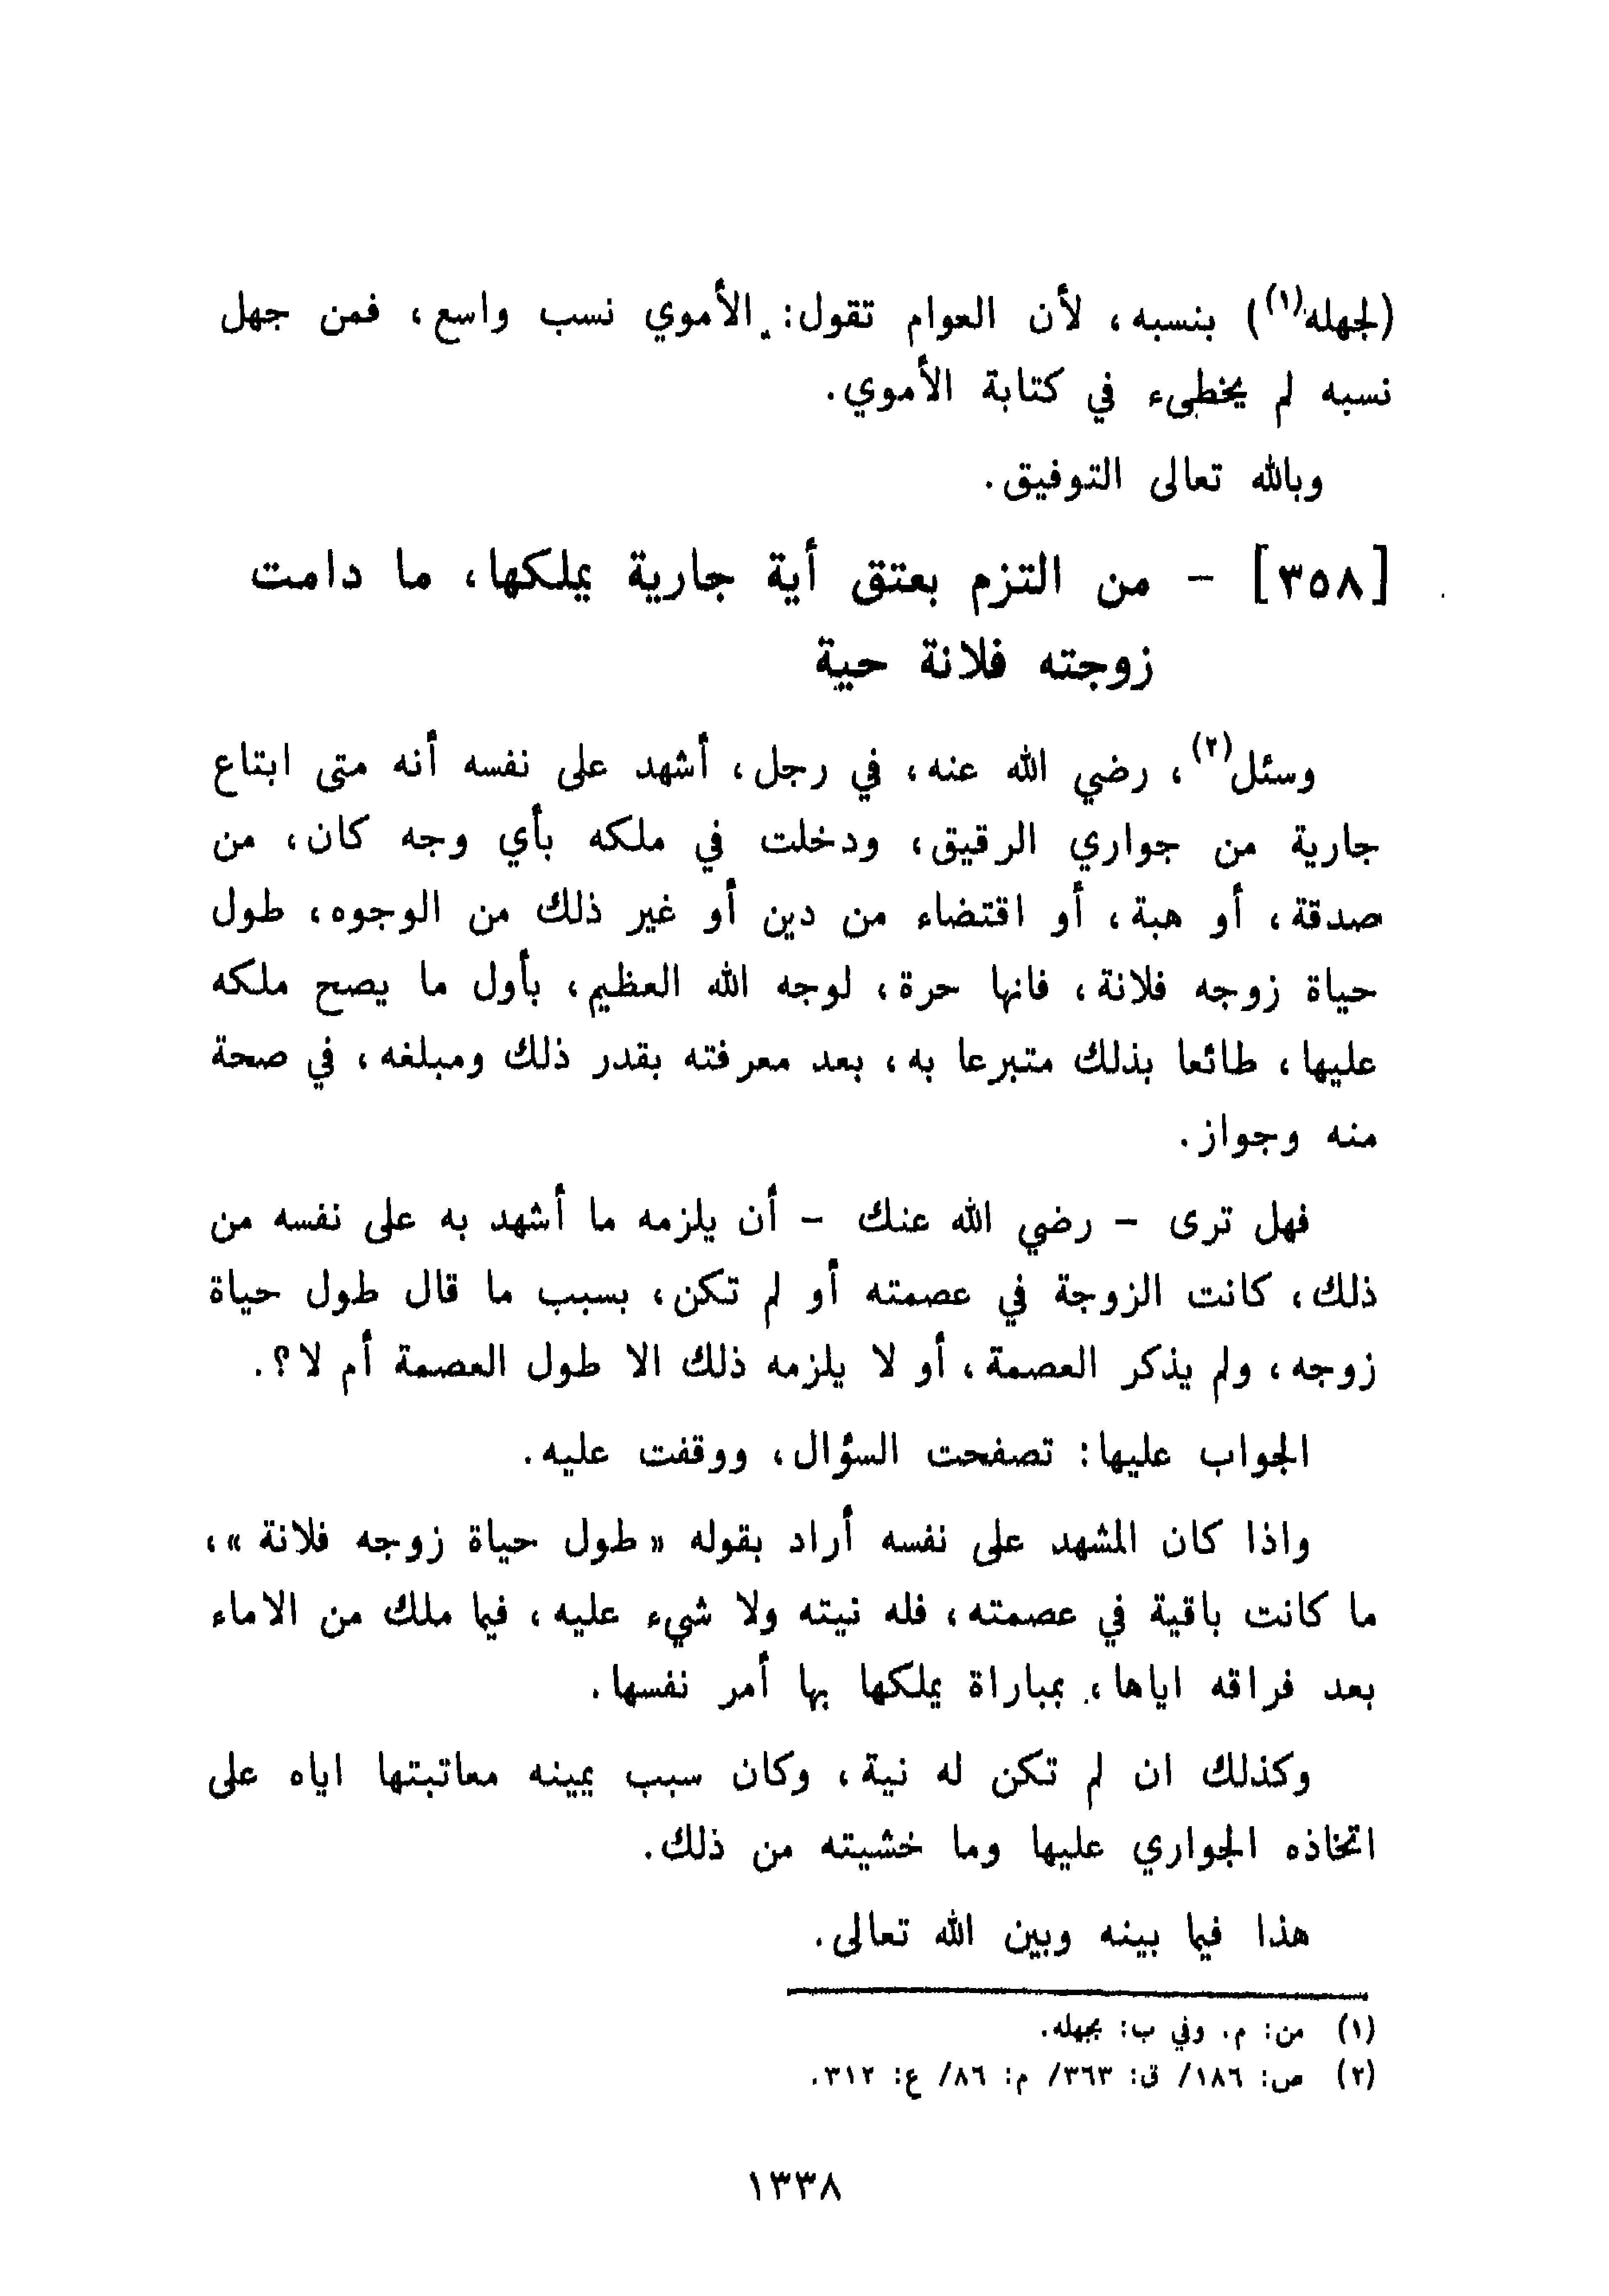 (لجهله(١)) بنسبه، لأن العوام تقول: الأموي نسب واسع، فمن جهل
نسبه لم يخطىء في كتابة الأموي.
وبالله تعالى التوفيق.
[٣٥٨] - من التزم بعتق أية جارية يملكها، ما دامت
زوجته فلانة حية
وسئل(٢)، رضي الله عنه، في رجل، أشهد على نفسه أنه متى ابتاع
جارية من جواري الرقيق، ودخلت في ملكه بأي وجه كان، من
صدقة، أو هبة، أو اقتضاء من دين أو غير ذلك من الوجوه، طول
حياة زوجه فلانة، فانها حرة، لوجه الله العظيم، بأول ما يصح ملكه
عليها، طائعا بذلك متبرعا به، بعد معرفته بقدر ذلك ومبلغه، في صحة
منه وجواز.
فهل ترى - رضي الله عنك - أن يلزمه ما أشهد به على نفسه من
ذلك، كانت الزوجة في عصمته أو لم تكن، بسبب ما قال طول حياة
زوجه، ولم يذكر العصمة، أو لا يلزمه ذلك الا طول العصمة أم لا؟.
الجواب عليها: تصفحت السؤال، ووقفت عليه.
واذا كان المشهد على نفسه أراد بقوله «طول حياة زوجه فلانة»،
ما كانت باقية في عصمته، فله نيته ولا شيء عليه، فيما ملك من الاماء
بعد فراقه اياها، بمباراة يملكها بها أمر نفسها.
وكذلك ان لم تكن له نية، وكان سبب يمينه معاتبتها اياه على
اتخاذه الجواري عليها وما خشيته من ذلك.
هذا فيما بينه وبين الله تعالى.
(١) من: م. وفي ب: بجهله.
(٢) ص: ١٨٦/ ق: ٣٦٣/ م: ٨٦/ ع: ٣١٢.
١٣٣٨